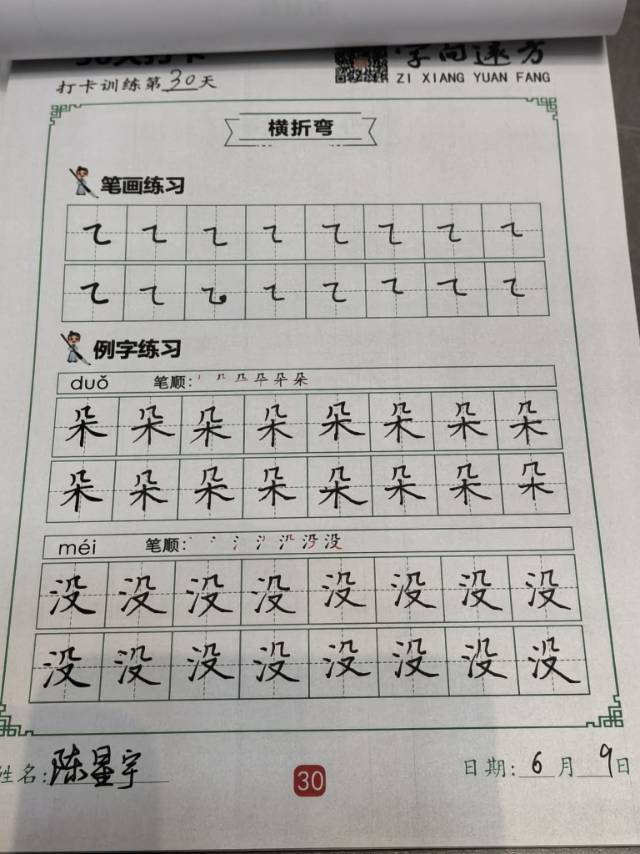 30天打卡
字向远方
打卡训练第30天
ZI XIANG YUAN FANG
横折弯
笔画练习
例字练习
duǒ 笔顺:
朵 朵 朵 朵 朵 朵 朵 朵
朵 朵 朵 朵 朵 朵 朵 朵
méi 笔顺:
没 没 没 没 没 没 没 没
没 没 没 没 没 没 没 没
姓名:陈星宇
30
日期:6月9日